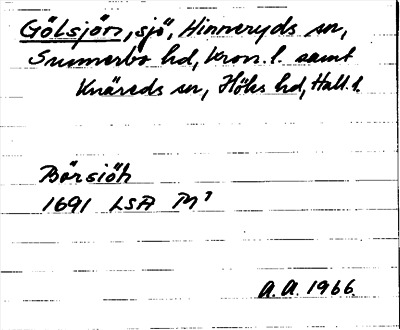 Gölsjön, sjö, Hinneryds sn,
Sunnerbo hd, Kron. l. samt
Knäreds sn, Höks hd, Hall. l.
Börsiöh
1691 LSA M¹
A.A. 1966